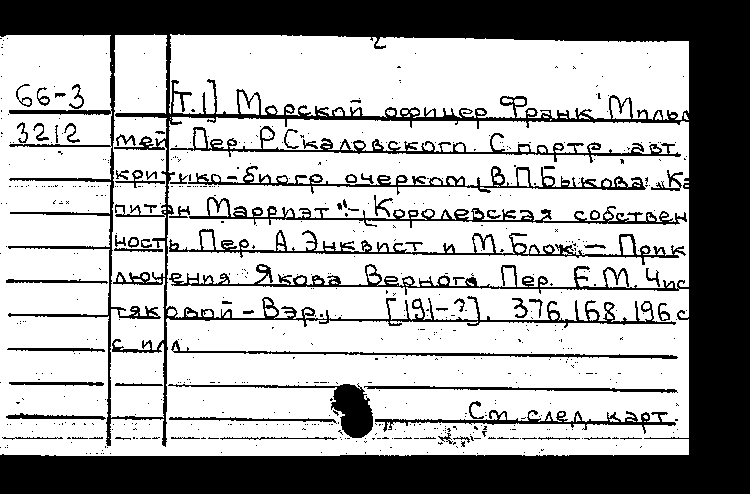 2
66-3 [Т.1]. Морской офицер Франк Мильд
3212 мей Пер. Р.Скаловского. С портр. авт.
критико-биогр. очерком В.П.Быкова "Ка
питан Марриэт".- Королевская собствен
ность Пер. А.Энквист и М.Блок.- Прик
лючения Якова Верного. Пер. Е.М.Чис
тяковой-Вэр. [191-?]. 376,168,196 с
с илл.
См след. карт.